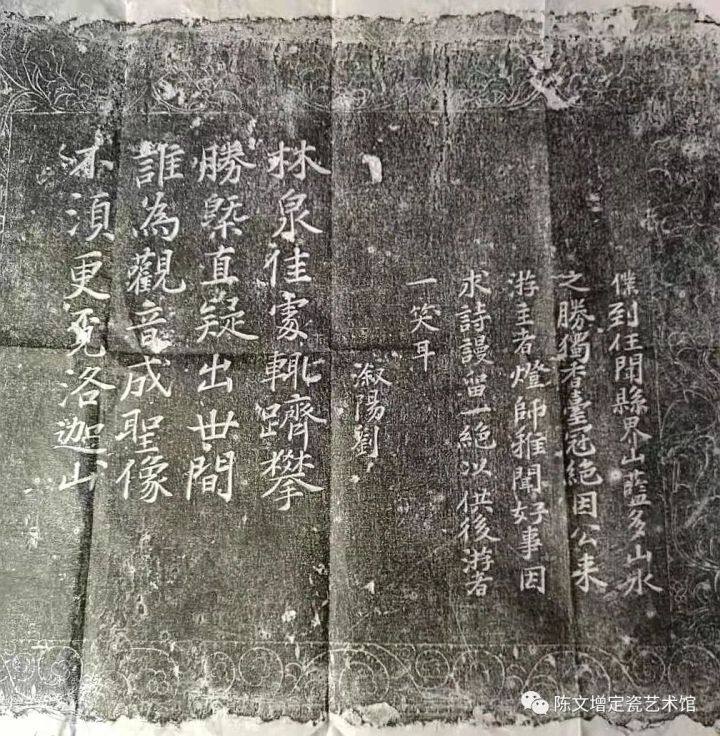 僕到任聞縣界山藍多山水
之勝獨香臺冠絕因公来
游主者燈師雅聞好事因
求詩謾留一絕以供後游者
一笑耳
溆陽劉
林泉徃䖏輙躋攀
勝槩直疑出世間
誰為觀音成聖像
不須更覔洛迦山
陈文增定瓷艺术馆